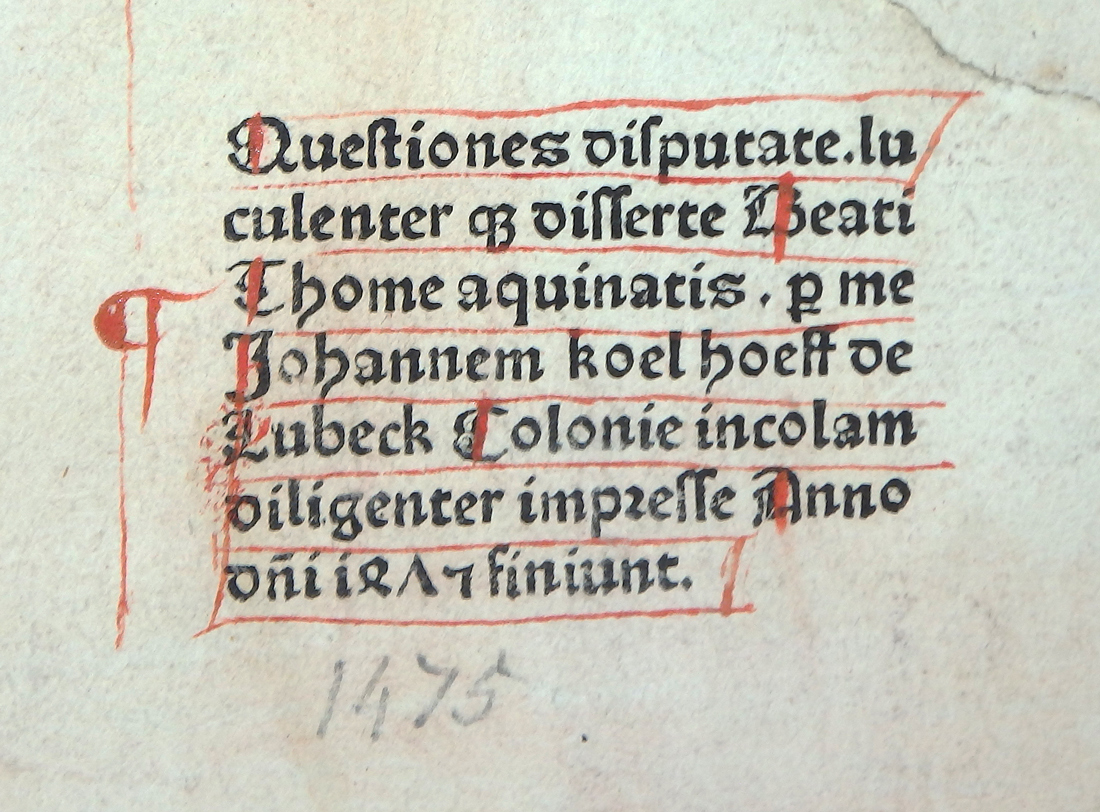 Questiones disputate.lu
culenter qꝫ disserte Beati
Thome aquinatis . ꝑ me
Johannem koelhoeff de
Lubeck Colonie incolam
diligenter impresse Anno
dñi i𝟪Λ⁊ finiunt.
1475